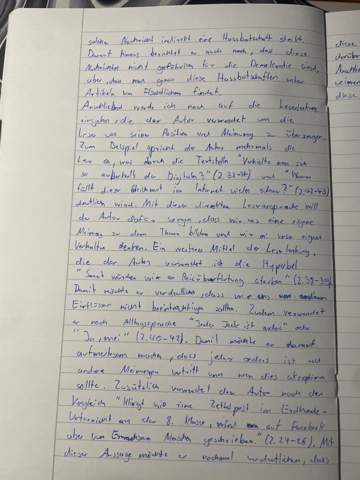 solchen Nachricht indirekt eine Hassbotschaft steckt.
Daraus hinaus berichtet er auch noch, dass diese
Nachrichten nicht gefährlich für die Demokratie sind,
aber, dass man genau diese Hassbotschaften unter
Artikeln von Flüchtlichen findet.
Anschließend werde ich noch auf die Leserlenkung
eingehen, die der Autor verwendet um die
Leser von seiner Position und Meinung zu überzeugen.
Zum Beispiel spricht der Autor mehrmals die
Leser an, was durch die Textstelle "Verhalte man sich
so außerhalb des Digitalen?" und "Warum
fällt dieser im Internet vielen schwer?" (Z.42-43)
deutlich wird. Mit dieser direkten Leseransprache will
der Autor dafür sorgen, dass wir uns eine eigene
Meinung zu dem Thema bilden und wir an unser eigenes
Verhalten denken. Ein weiteres Mittel der Leserlenkung,
die der Autor verwendet ist die Hyperbel
"Somit würden wir an Reizüberflutung sterben"
Damit möchte er verdeutlichen, dass wir uns von anderen
Einflüssen nicht beeinträchtigen sollten. Zudem verwendet
er noch Alltagssprache "Jeder Jeck ist anders" oder
"Ja, mei" (Z.40-42). Damit möchte er darauf
aufmerksam machen, dass jeder anders ist und
andere Meinungen vertritt und man dies akzeptieren
sollte. Zusätzlich verwendet der Autor noch den
Vergleich "Klingt wie eine Zettelpost im Erdkunde-
Unterricht aus der 8. Klasse, wird auf Facebook
aber von Erwachsenen Menschen geschrieben." (Z.24-26). Mit
dieser Aussage möchte er nochmal verdeutlichen, dass